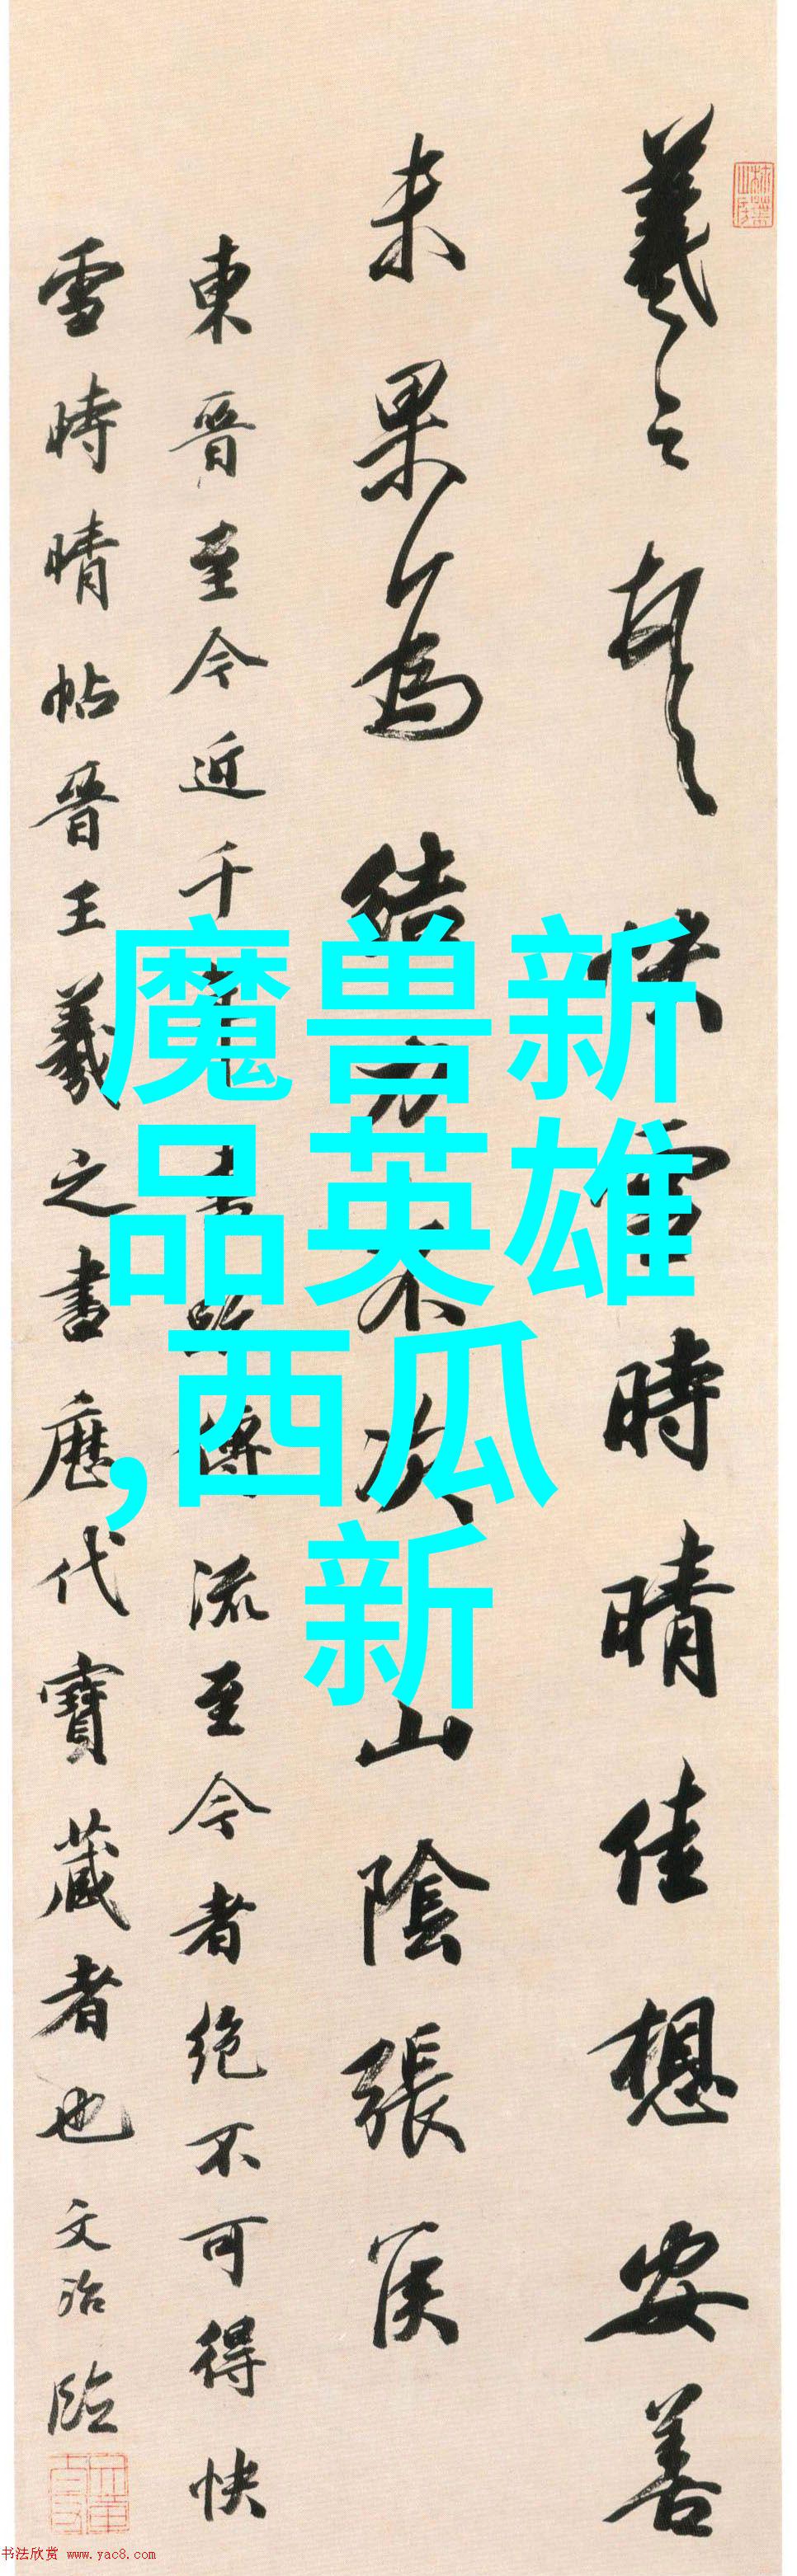 羲之頓首快雪時晴佳想安善
未果為結力不次山陰張侯
東晉至今近千年書跡傳流至今者絕不可得快
雪時晴帖晉王羲之書歷代寶藏者也文治臨
魔兽新
品英雄
,西瓜
新
书法欣赏 www.yac8.com